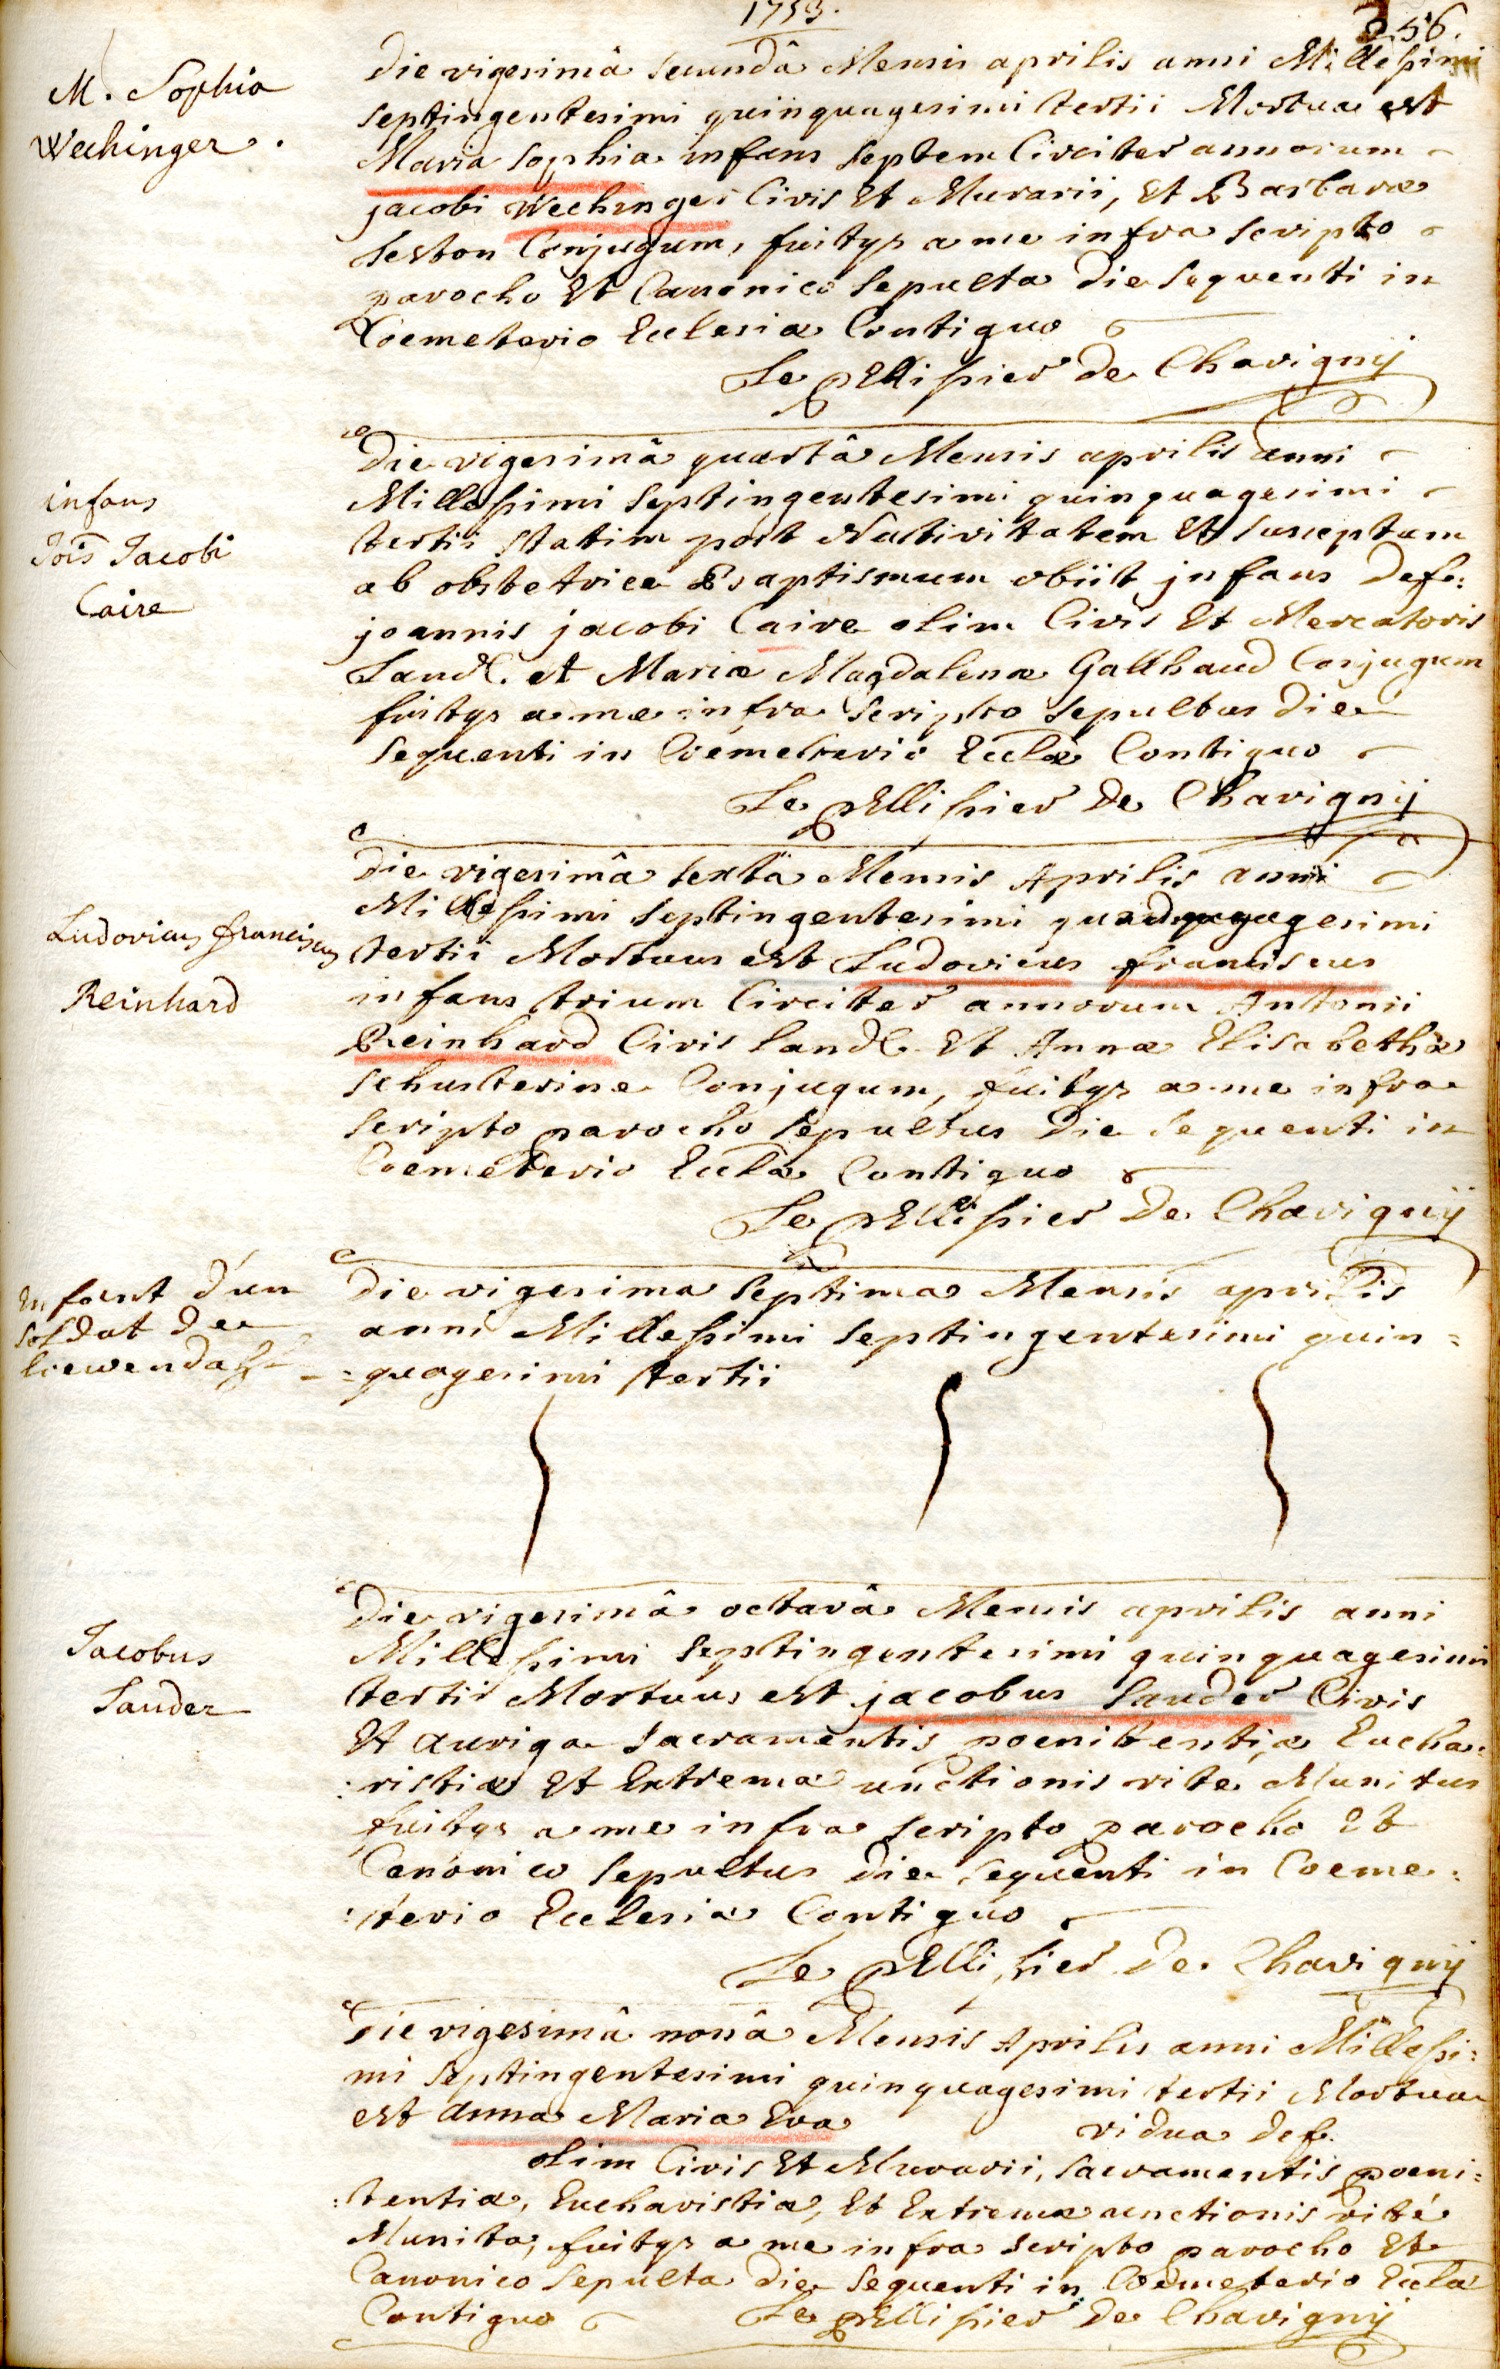 1753.
256.
M. Sophia
Wechinger.
Die vigesimâ secundâ Mensis aprilis anni Millesimi
septingentesimi quinquagesimi tertii Mortua est
Maria Sophia infans septem Circiter annorum
jacobi Wechinger Civis Et Murarii, Et Barbaræ
Conjugum, fuitqs a me infra scripto
parocho Et Canonico sepulta die sequenti in
Coemeterio Ecclesiæ Contiguo
Le pellissier de Chavignij
infans
Jois Jacobi
Caire
Die vigesimâ quartâ Mensis aprilis anni
Millesimi septingentesimi quinquagesimi
tertii statim post Nativitatem Et susceptum
ab obstetrice Baptismum obiit jnfans defc:
joannis jacobi Caire olim Civis Et Mercatoris
Landl. et Mariæ Magdalenæ Gallhaud Conjugum
fuitqs a me infra scripto sepultus die
sequenti in Coemeterio Ecclæ Contiguo
Le pellissier de Chavignij
Ludovicus franciscus
Reinhard
Die vigesimâ sextâ Mensis Aprilis anni
Millesimi septingentesimi quinquagesimi
tertii Mortuus est Ludovicus franciscus
infans trium Circiter annorum Antonii
Reinhard Civis Landl. Et Annæ Elisabethæ
schusterine Conjugum, fuitqs a me infra
scripto parocho sepultus die sequenti in
Coemeterio Eccla Contiguo
Le pellissier de Chavignij
Enfant d'un
soldat de
liewendahl
Die vigesima septima Mensis aprilis
anni Millesimi septingentesimi quin=
=quagesimi tertii
Jacobus
Sauder
Die vigesimâ octavâ Mensis aprilis anni
Millesimi septingentesimi quinquagesimi
tertii Mortuus est jacobus Sauder Civis
Et auriga sacramentis poenitentiæ Eucha:
:ristiæ Et Extrema unctionis rite Munitus
fuitqs a me infra scripto parocho Et
Canonico sepultus die sequenti in Coeme:
:terio Ecclesiæ Contiguo
Le pellissier de Chavignij
Die vigesimâ nonâ Mensis Aprilis anni Millesi:
mi septingentesimi quinquagesimi tertii Mortua
est anna Maria Eva vidua def.
olim Civis Et Murarii, sacramentis poeni:
:tentiæ, Eucharistiæ, Et Extremæ unctionis rité
Munita, fuitqs a me infra scripto parocho Et
Canonico sepulta die sequenti in Coemeterio Eccla
Contiguo Le pellissier de Chavignij